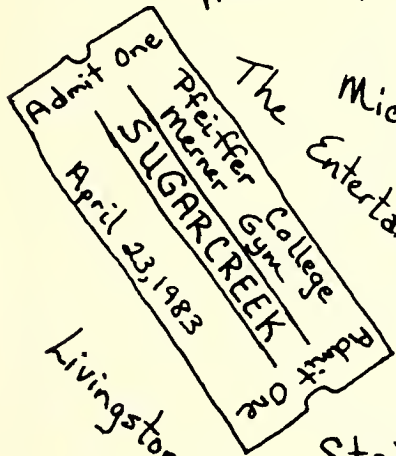 Admit One
Pfeiffer College
Merner Gym
SUGARCREEK
April 23, 1983
Admit One
The
Enterta
Mic
Livingston
Sta